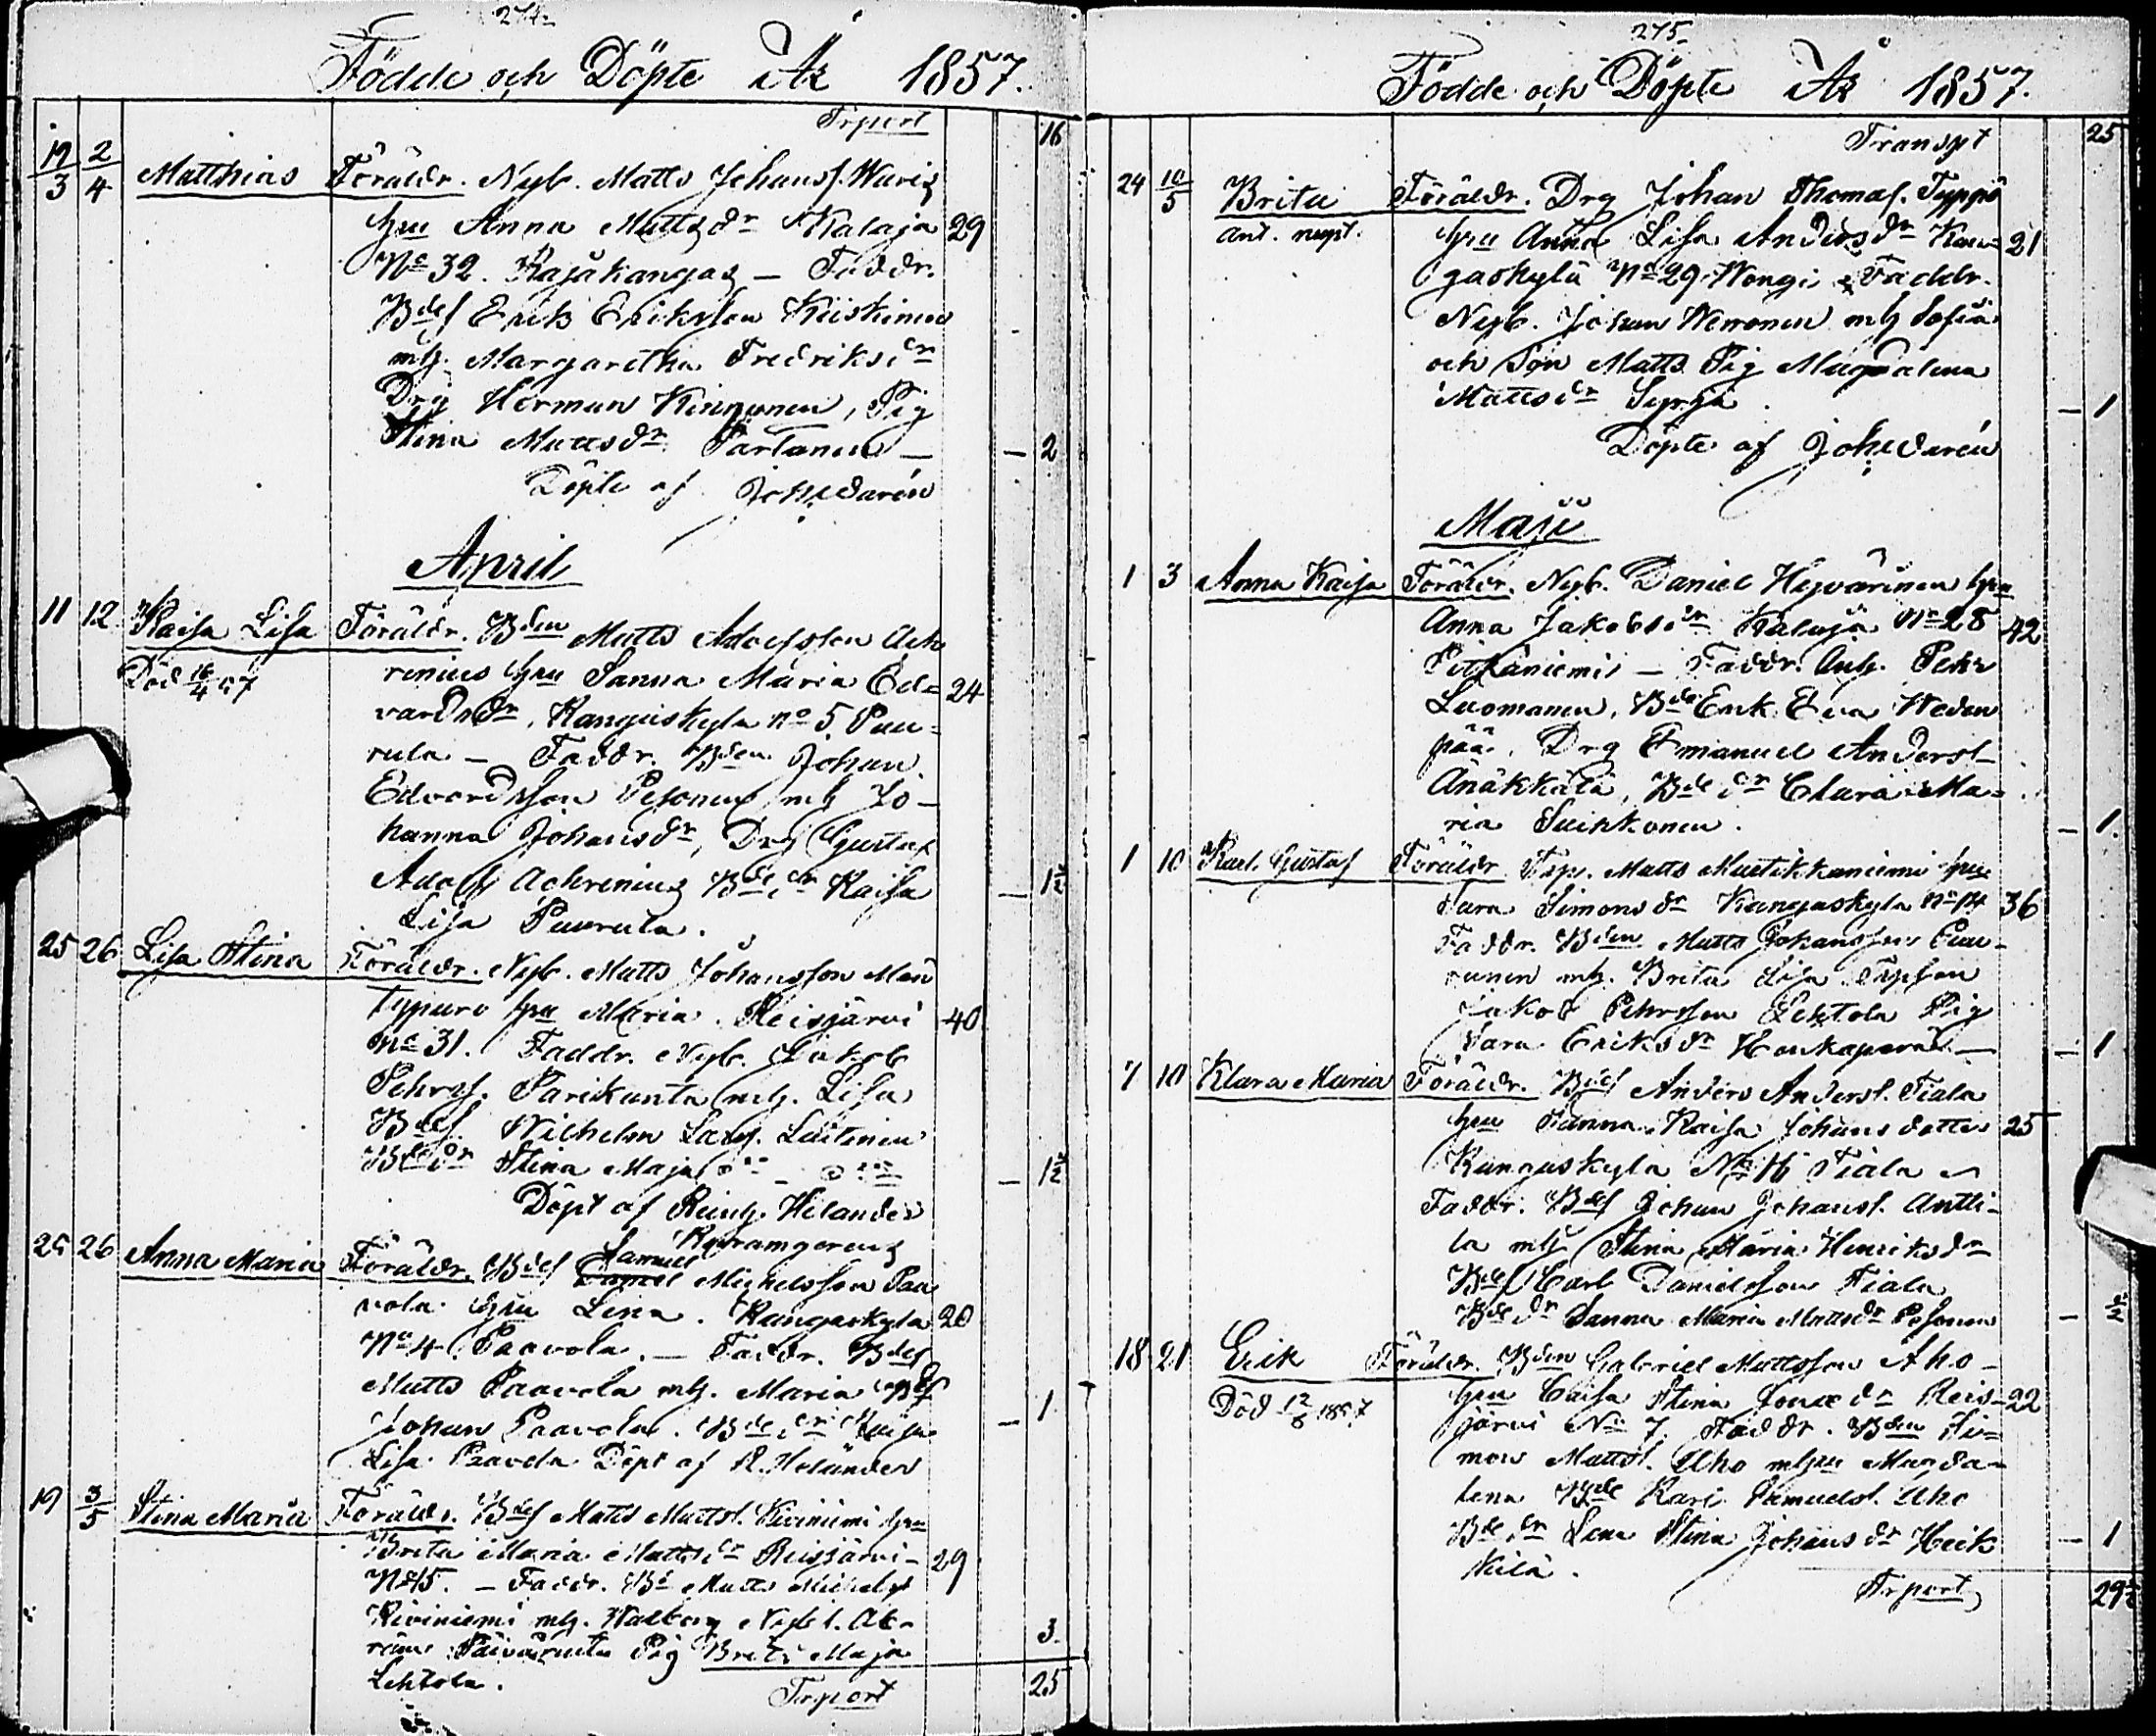 274.
Födde och Döpte År 1857.
Trport 16
19/3 2/4 Matthias Föräldr. Nyb. Matts Johanss. Waris
hu Anna Mattsdr Kalaja 29
No 32. Rajakangas — Faddr.
Bdes Erik Eriksson Kiiskinen
mh. Margaretha Fredriksdr
Drg Herman Kinnunen, Pig
Stina Mattsdr Partanen — — 2
Döpte af Joh. Darén
April
11 12 Kaisa Lisa Föräldr. Bden Matts Adolfsson Ach
Död 16/4 57 renius hu Sanna Maria Ed= 24
vardsdr, Kangaskyla no 5, Puu=
rula — Faddr. Bden Johan
Edvardsson Pesonen mh Jo-
hanna Johansdr, Drg Gustaf
Adolf Achrenius Bde dr Kaisa — 1½
Lisa Puurula.
25 26 Lisa Stina Föräldr. Nyb. Matts Johansson Män
typuro hu Maria. Reisjärvi 40
No 31. Faddr. Nyb. Jakob
Pehrss. Parikanta mh. Lisa
Bdes. Wilhelm Lars. Luttinen
Bde dr Stina Maja — 1½
Döpt af Reinh. Helander
Kapramgerens
25 26 Anna Maria Föräldr. Bdes Samuel Michelsson Paa
vola hu Lena. Kangaskyla 20
No 4 Paavola. — Faddr. Bdes
Matts Paavola mh. Maria Bdes
Johan Paavola. Bde dr Kaisa — 1
Lisa Paavola Döpt af R. Helander
19 3/5 Stina Maria Föräldr. Bdes Matts Mattss. Kiviniemi hu
Brita Maria Mattsdr Reisjärvi — 29
No 15. — Faddr. Bd Matts Michelss
Kiviniemi mh. Walborg Nyb s. Ab-
ram Päivärinta Pig Brita Maja 3.
Lehtola. Trport 25
275.
Födde och Döpte År 1857.
Transpt 25
24 10/5 Brita Föräldr. Drg Johan Thomass. Typpö
ant. nupt. hu Anna Lisa Andersdr Kan= 21
gaskylä No 29 Wongi — Faddr.
Nyb. Johan Weronen mh Sofia
och Son Matts Pig Magdalena
Mattsdr Syrjä. — 1
Döpte af Joh. Darén
Maji
1 3 Anna Kaisa Föräldr. Nyb. Daniel Hyvärinen hu
Anna Jakobsdr Kalaja No 28 42
Pitkäniemi — Faddr. Anh. Pehr
Luomanen, Bde Erik Eva Weden
pää, Drg Emanuel Anderss.
Änäkkälä, Bde dr Clara Ma=
ria Suikkonen. — 1.
1 10 Karl Gustaf Föräldr. Trp. Matts Mustikkaniemi hu
Sara Simonsdr Kangaskyla No 14 36
Faddr. Bden Matts Johansson Puu-
runen mh. Brita Lisa Trpson
Jakob Pehrsson Lehtola Pig
Sara Eriksdr Honkaperä — — 1
7 10 Klara Maria Föräldr. Bdes Anders Anderss. Tiala
hu Sanna Kaisa Johansdotter 25
Kangaskyla No 16 Tiala
Faddr. Bdes Johan Johanss. Antti-
la mh Stina Maria Henriksdr
Bdes Carl Danielsson Tiala
Bde dr Sanna Maria Mattsdr Pesonen — ½
18 21 Erik Föräldr. Bden Gabriel Mattsson Aho
Död 12/6 1857 hu Caisa Stina Jonaedr Reis- 22
järvi No 7. Faddr. Bden Si=
mon Mattss. Aho mhu Magda=
lena Bde Karl Samuelss. Aho
Bde dr Lena Stina Johansdr Heik — 1
kilä.
Trport 29½